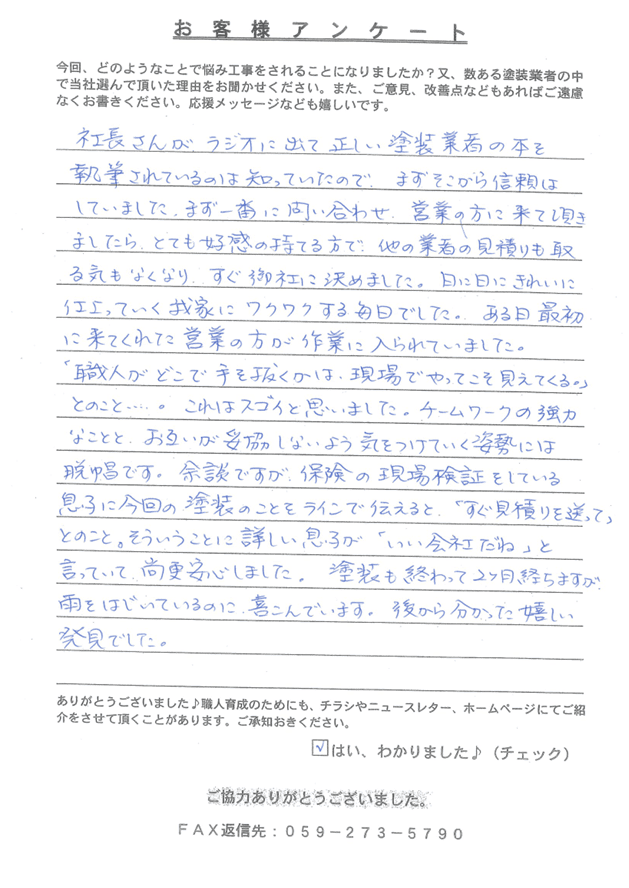 お客様アンケート
今回、どのようなことで悩み工事をされることになりましたか？又、数ある塗装業者の中
で当社選んで頂いた理由をお聞かせください。また、ご意見、改善点などもあればご遠慮
なくお書きください。応援メッセージなども嬉しいです。
社長さんが、ラジオに出て正しい塗装業者の本を
執筆されているのは知っていたので、まずそこから信頼は
していました。まず一番に問い合わせ、営業の方に来て頂き
ましたら、とても好感の持てる方で、他の業者の見積りも取
る気もなくなり、すぐ御社に決めました。日に日にきれいに
仕上っていく我家にワクワクする毎日でした。ある日最初
に来てくれた営業の方が作業に入られていました。
「職人がどこで手を抜くかは、現場でやってこそ見えてくる。」
とのこと・・・・。これはスゴイと思いました。チームワークの強力
なことと、お互いが妥協しないよう気をつけていく姿勢には
脱帽です。余談ですが、保険の現場検証をしている
息子に今回の塗装のことをラインで伝えると、「すぐ見積りを送って」
とのこと。そういうことに詳しい息子が「いい会社だね」と
言っていて、尚更安心しました。 塗装も終わって2ヶ月経ちますが、
雨をはじいているのに、喜こんでいます。後から分かった嬉しい
発見でした。
ありがとうございました♪職人育成のためにも、チラシやニュースレター、ホームページにてご紹
介をさせて頂くことがあります。ご承知おきください。
☑はい、わかりました♪（チェック）
ご協力ありがとうございました。
ＦＡＸ返信先：０５９－２７３－５７９０